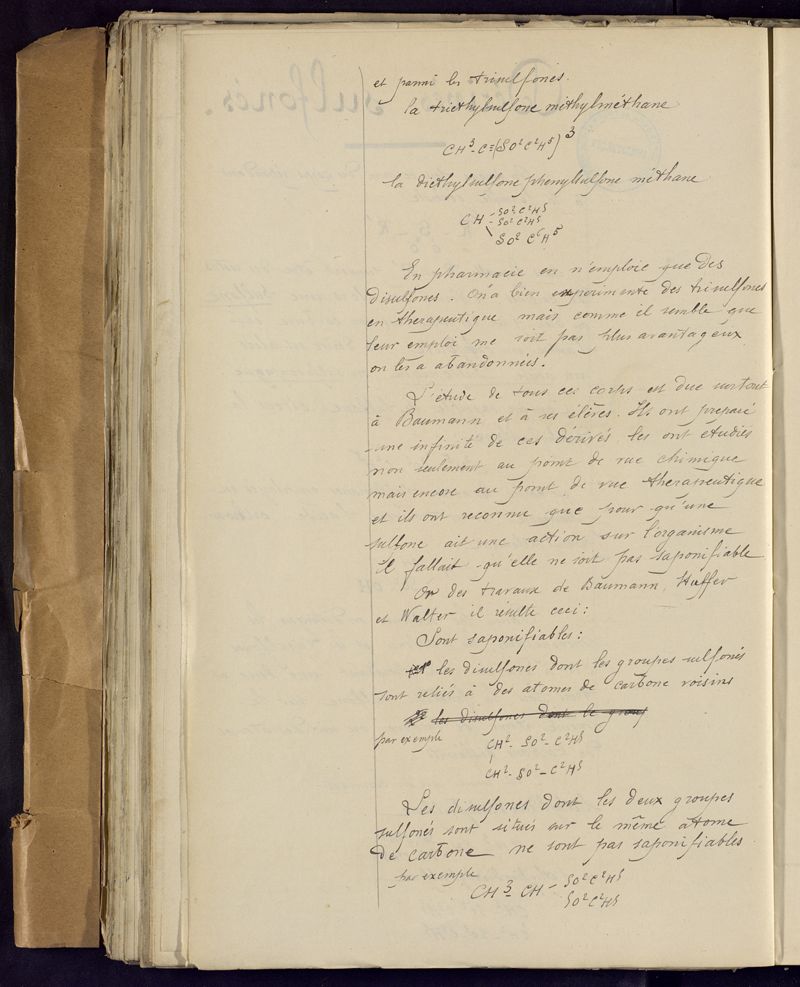 et parmi les trisulfones.
la triethylsulfone méthylméthane
CH³-C≡(SO²C²H⁵)³
la diethylsulfone phenylsulfone méthane
CH - SO²C²H⁵
- SO²C²H⁵
\ SO² C⁶H⁵
En pharmacie on n'emploie que des
disulfones. On a bien experimenté des trisulfones
en therapeutique mais comme il semble que
leur emploi ne soit pas plus avantageux
on les a abandonnées.
L'étude de tous ces corps est due surtout
à Baumann et à ses élèves. Ils ont preparé
une infinité de ces dérivés, les ont etudiés
non seulement au point de vue chimique
mais encore au point de vue therapeutique
et ils ont reconnu que pour qu'une
sulfone ait une action sur l'organisme
il fallait qu'elle ne soit pas saponifiable
Or des travaux de Baumann,
et Walter il résulte ceci:
Sont saponifiables:
les disulfones dont les groupes sulfonés
sont reliés à des atomes de carbone voisins
les disulfones dont le group
par exemple
CH² - SO² - C²H⁵
|
CH² - SO² - C²H⁵
Les disulfones dont les deux groupes
sulfonés sont situés sur le même atome
de carbone ne sont pas saponifiables
par exemple
CH³ - CH - SO²C²H⁵
SO²C²H⁵
sulfonés.